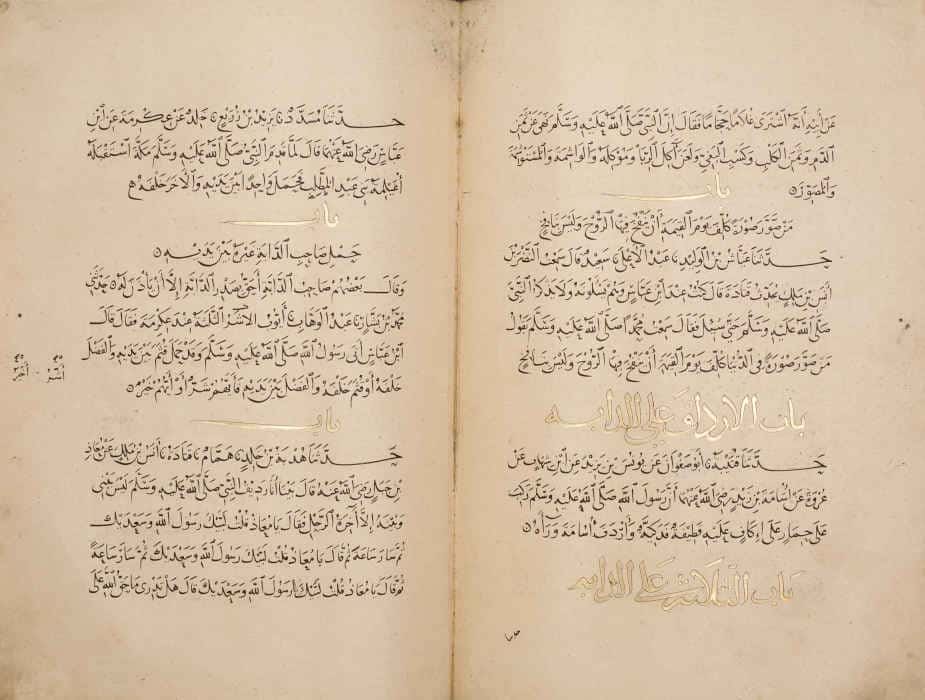 عن أبيه أنه اشترى غلاما حجاما فقال إن النبي صلى الله عليه وسلم نهى عن ثمن
الدم وثمن الكلب وكسب البغي ولعن آكل الربا وموكله والواشمة والمستوشمة
والمصور
باب
من صور صورة كلف يوم القيمة أن ينفخ فيها الروح وليس بنافخ
حدثنا عياش بن الوليد نا عبد الأعلى نا سعيد قال سمعت النضر بن
أنس بن مالك يحدث قتادة قال كنت عند ابن عباس وهم يسألونه ولا يذكر النبي
صلى الله عليه وسلم حتى سئل فقال سمعت محمدا صلى الله عليه وسلم يقول
من صور صورة في الدنيا كلف يوم القيمة أن ينفخ فيها الروح وليس بنافخ
باب الارداف على الدابه
حدثنا قتيبة نا أبو صفوان عن يونس بن يزيد عن ابن شهاب عن
عروة عن أسامة بن زيد رضي الله عنهما أن رسول الله صلى الله عليه وسلم ركب
على حمار على إكاف عليه قطيفة فدكية وأردف أسامة وراءه
باب الثلاثة على الدابه
حدثنا مسدد نا يزيد بن زريع نا خالد عن عكرمة عن ابن
عباس رضي الله عنهما قال لما قدم النبي صلى الله عليه وسلم مكة استقبله
أغيلمة بني عبد المطلب فحمل واحدا بين يديه والآخر خلفه
باب
حمل صاحب الدابة غيره بين يديه
وقال بعضهم صاحب الدابة أحق بصدر الدابة إلا أن يأذن له حدثني
محمد بن بشار نا عبد الوهاب نا أيوب الأشر الثلثة عند عكرمة فقال قال
ابن عباس أتى رسول الله صلى الله عليه وسلم وقد حمل قثم بين يديه والفضل
خلفه أو قثم خلفه والفضل بين يديه فأيهم شر أو أيهم خير
باب
حدثنا هدبة بن خالد نا همام نا قتادة نا أنس بن مالك عن معاذ
بن جبل رضي الله عنه قال بينا أنا رديف النبي صلى الله عليه وسلم ليس بيني
وبينه إلا أخرة الرحل فقال يا معاذ قلت لبيك رسول الله وسعديك
ثم سار ساعة ثم قال يا معاذ قلت لبيك رسول الله وسعديك ثم سار ساعة
ثم قال يا معاذ قلت لبيك رسول الله وسعديك قال هل تدري ما حق الله على